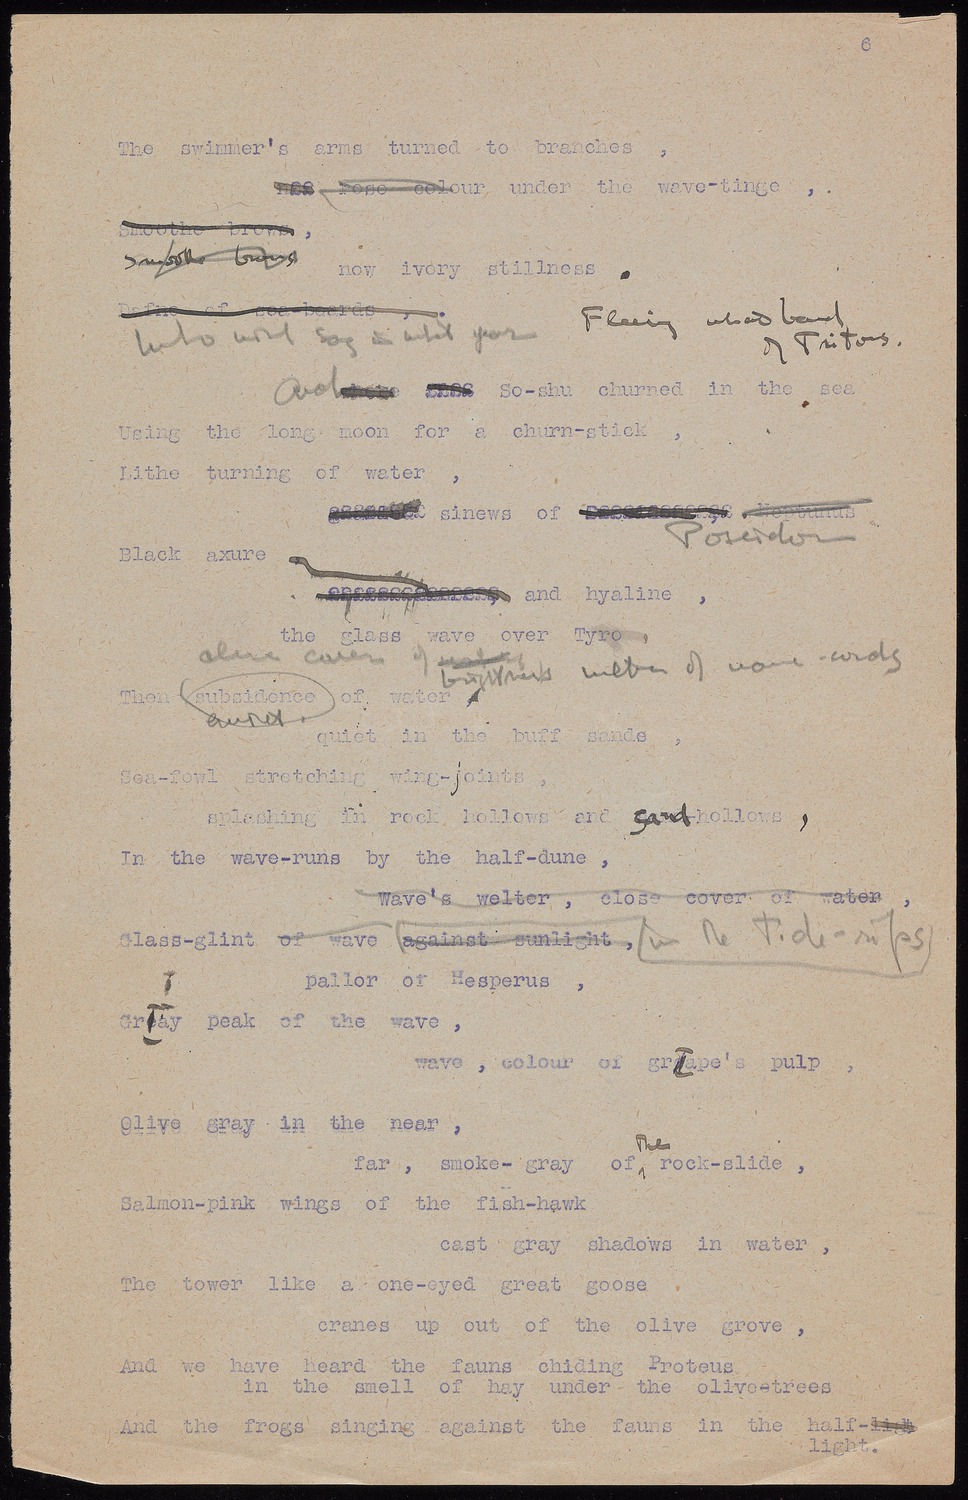 6
The swimmer's arms turned to branches ,
rose colour under the wave-tinge , .
Smoothe brows ,
Smoothe brows
now ivory stillness .
Dafne of sea-boards , .
Who will say in what year
Fleeing what band
of Tritons.
And So-shu churned in the sea
Using the long moon for a churn-stick ,
Lithe turning of water ,
sinews of Neptunus
Poseidon
Black axure
and hyaline ,
the glass wave over Tyro ,
close cover of
brightness welter of wave-cords
Then subsidence of water ,
quiet.
quiet in the buff sands ,
Sea-fowl stretching wing-joints ,
splashing in rock hollows and sand-hollows ,
In the wave-runs by the half-dune ,
Wave's welter , close cover of water ,
Glass-glint of wave against sunlight , in the tide-rips
pallor of Hesperus ,
Gray peak of the wave ,
wave , colour of grape's pulp ,
Olive gray in the near ,
the
far , smoke- gray of rock-slide ,
Salmon-pink wings of the fish-hawk
cast gray shadows in water ,
The tower like a one-eyed great goose
cranes up out of the olive grove ,
And we have heard the fauns chiding Proteus
in the smell of hay under the olive-trees
And the frogs singing against the fauns in the half-ligh
light.